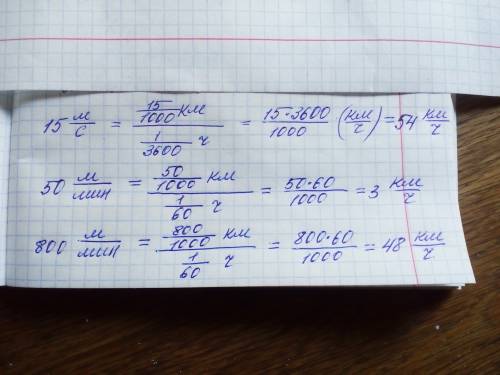 15 м/с = (15/1000 км)/(1/3600 ч) = 15·3600/1000 (км/ч) = 54 км/ч
50 м/мин = (50/1000 км)/(1/60 ч) = 50·60/1000 = 3 км/ч
800 м/мин = (800/1000 км)/(1/60 ч) = 800·60/1000 = 48 км/ч